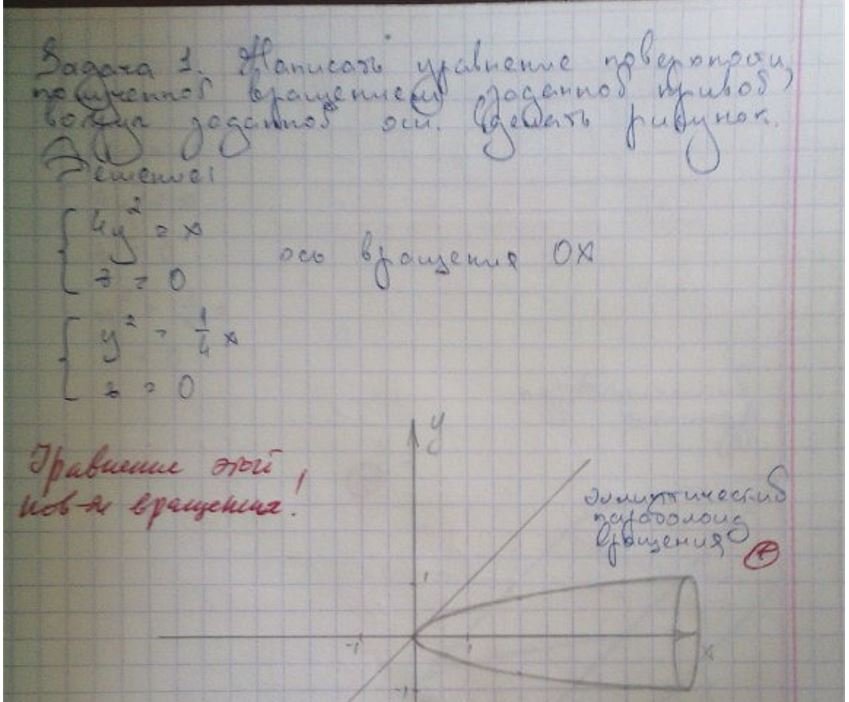 Задача 1. Написать уравнение поверхности,
полученной вращением заданной кривой
вокруг заданной оси. Сделать рисунок.
Решение:
4y² = x
z = 0
ось вращения OX
y² = 1/4 x
z = 0
Уравнение этой
пов-и вращения!
y
эллиптический
параболоид
вращения
+
1
-1
1
x
-1